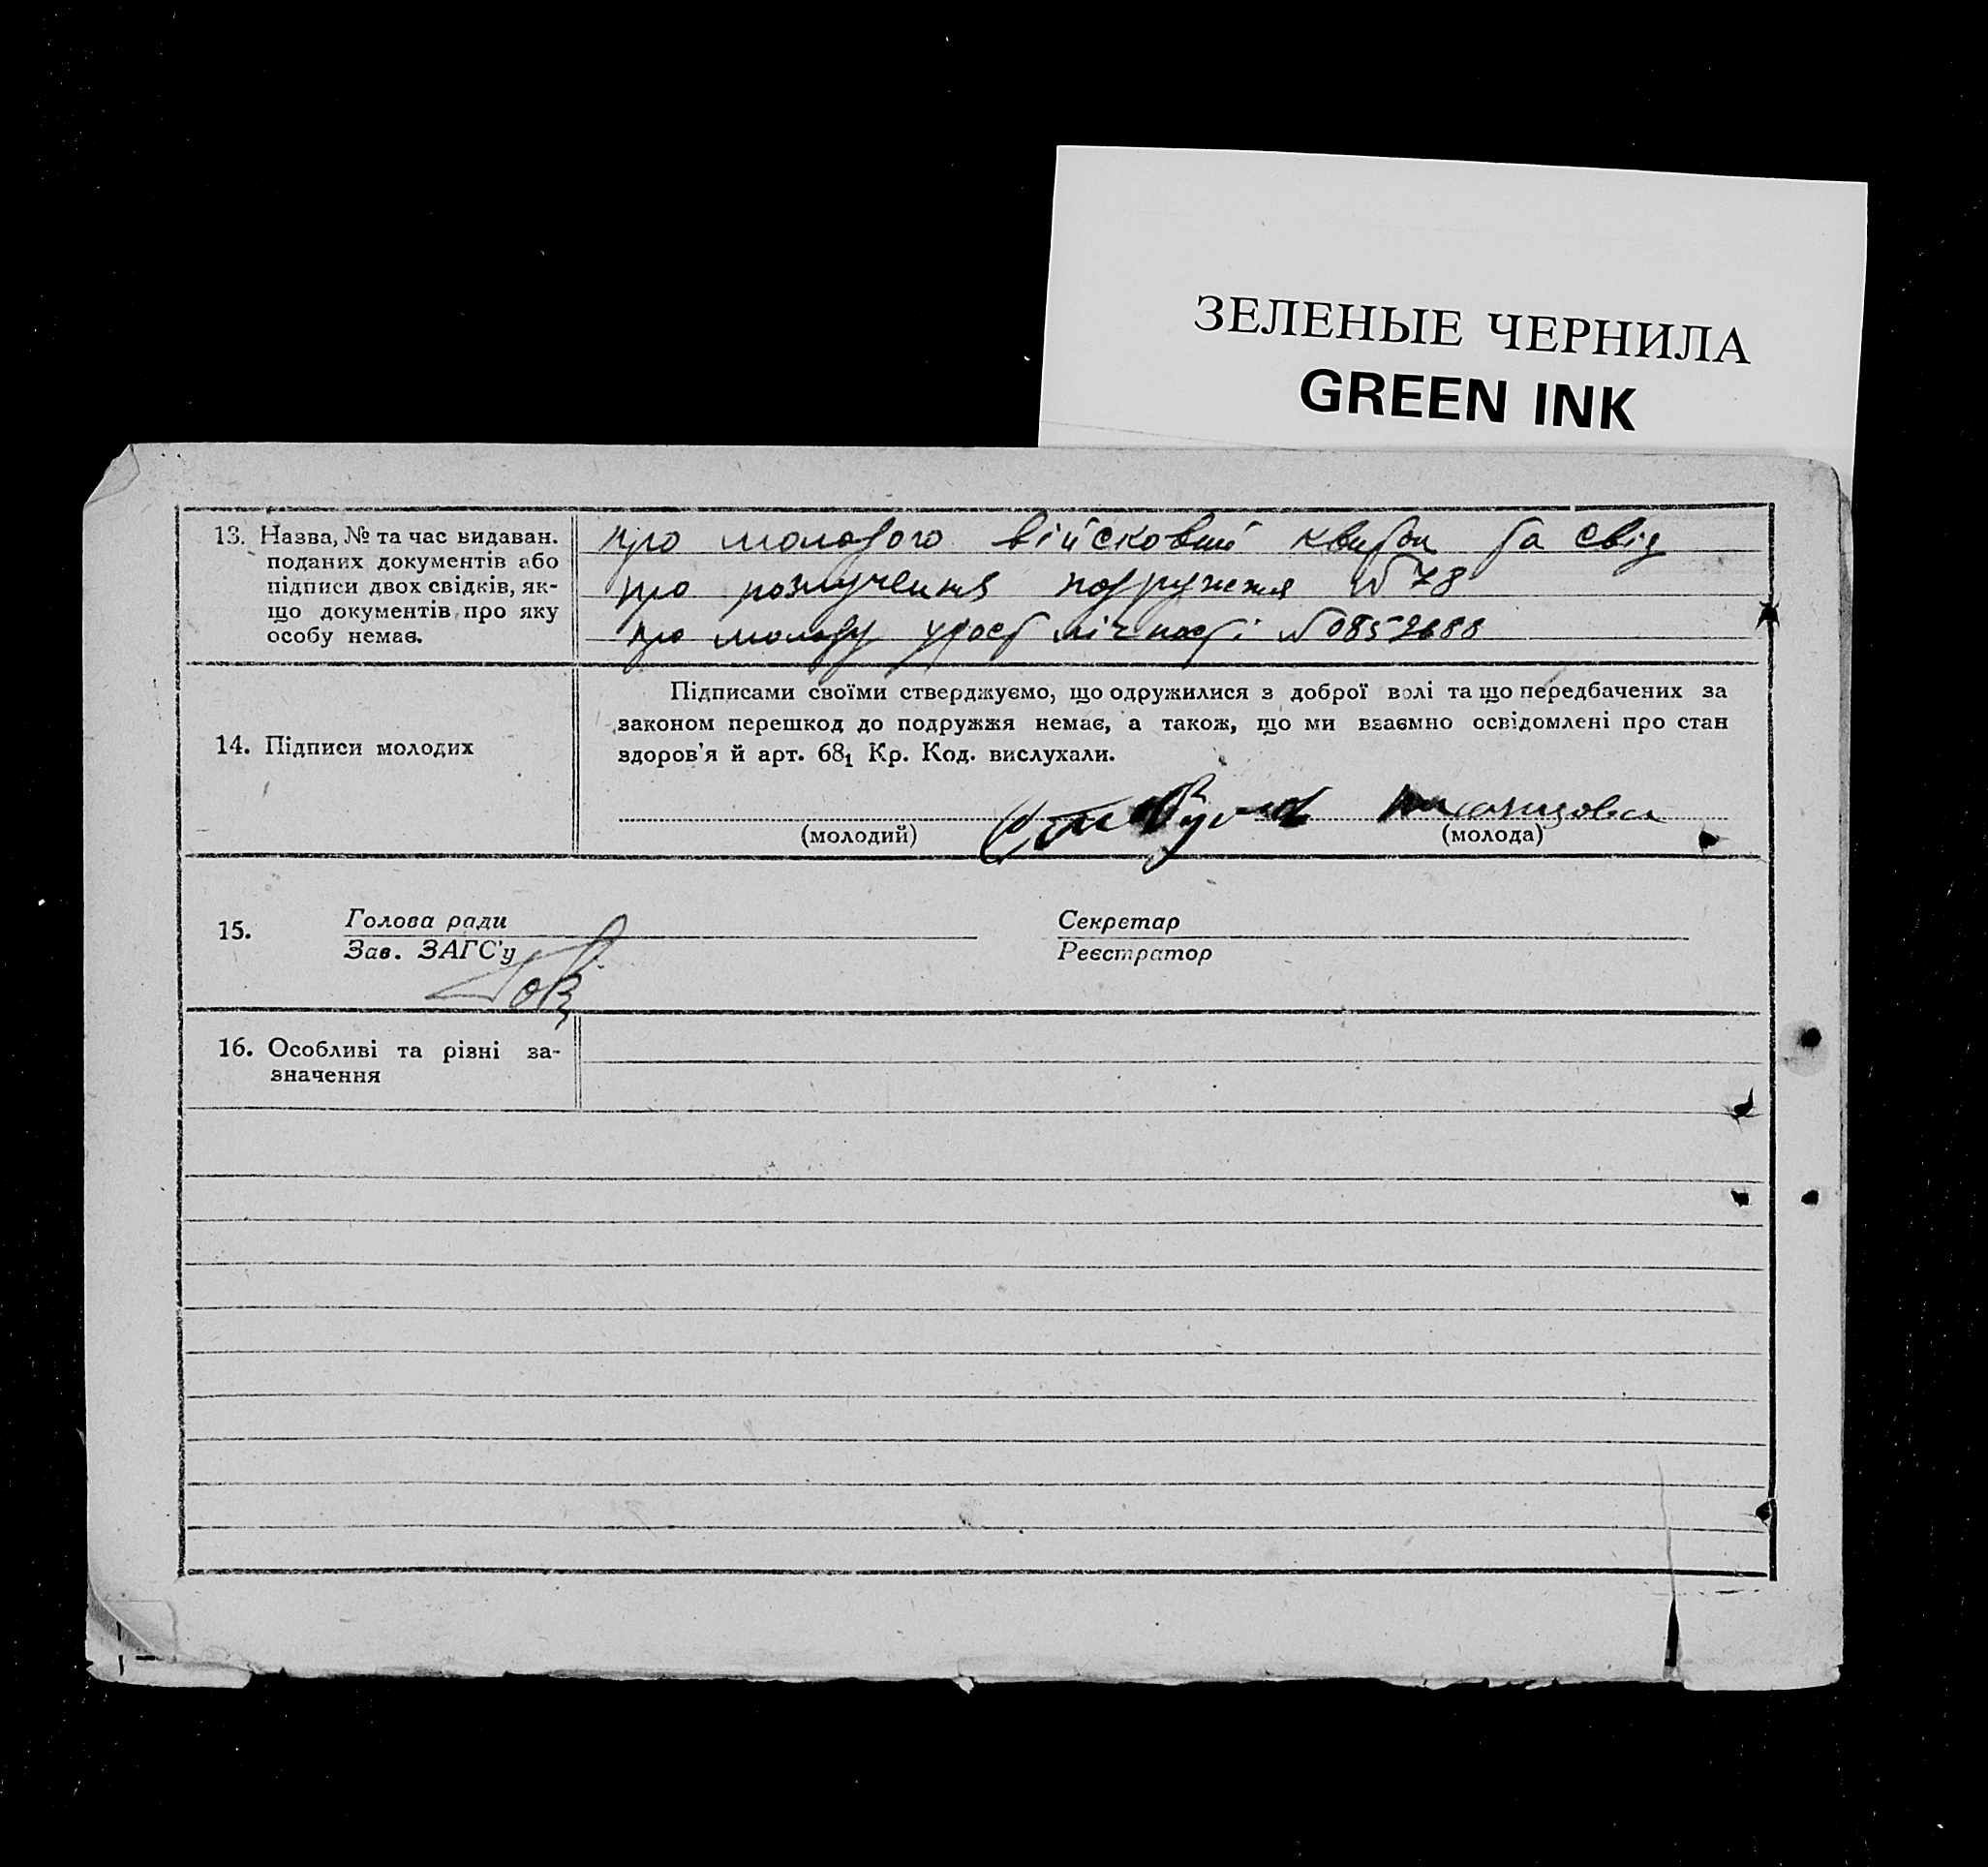 ЗЕЛЕНЫЕ ЧЕРНИЛА
GREEN INK
13. Назва, № та час видаван.
поданих документів або
підписи двох свідків, як-
що документів про яку
особу немає.
про молодого військовий квиток та свід
про розлучення подружжя № 78
про молоду удост лічності №
14. Підписи молодих
Підписами своїми стверджуємо, що одружилися з доброї волі та що передбачених за
законом перешкод до подружжя немає, а також, що ми взаємно освідомлені про стан
здоров'я й арт. 68₁ Кр. Код. вислухали.
(молодий)
(молода)
15.
Голова ради
Зав. ЗАГС'у
Секретар
Реєстратор
16. Особливі та різні за-
значення